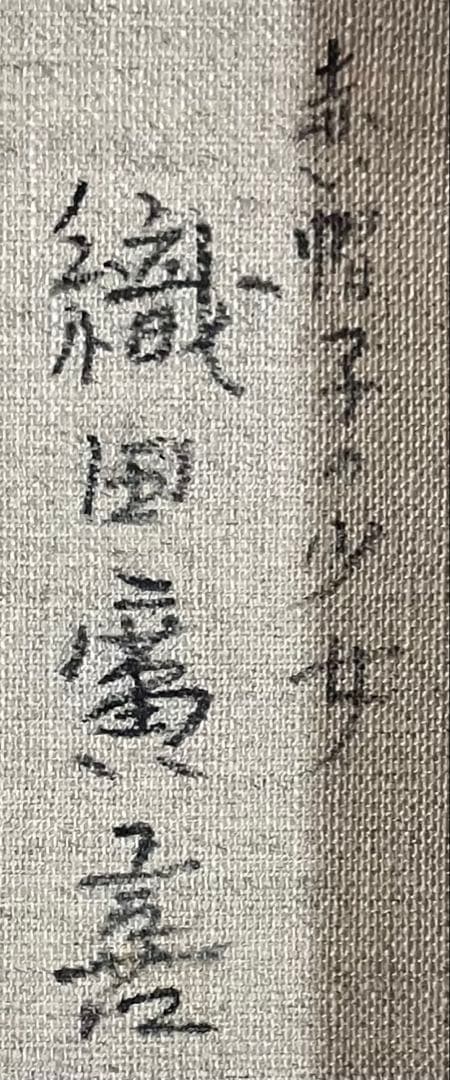 赤い帽子の少女
織田廣喜